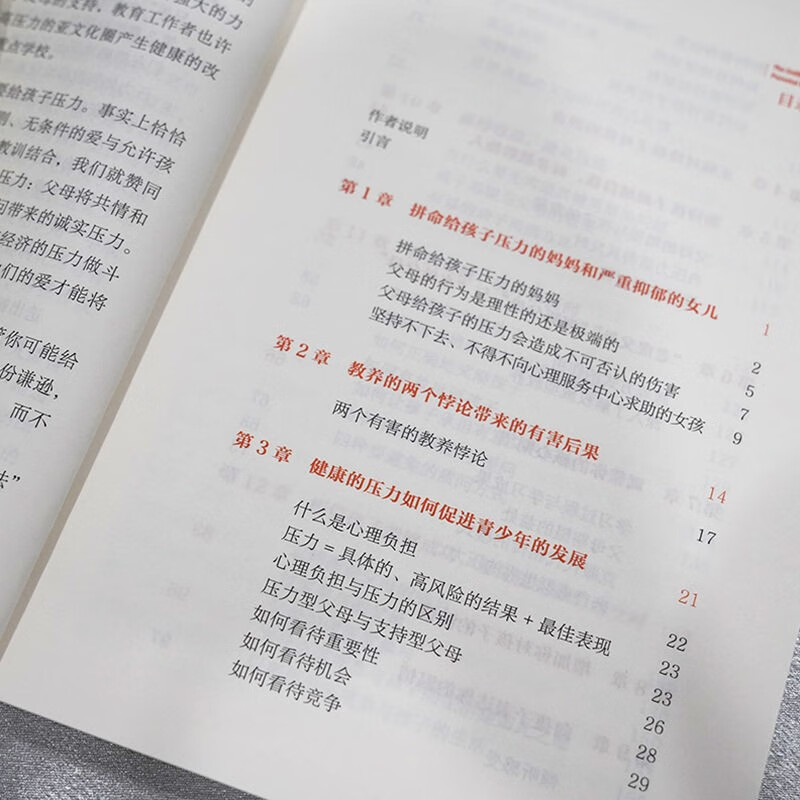 强大的力
的支持，教育工作者也许
高压力的亚文化圈产生健康的改
重点学校。
要给孩子压力。事实上恰恰
则、无条件的爱与允许孩
教训结合，我们就赞同
压力：父母将共情和
问带来的诚实压力。
经济的压力做斗
我们的爱才能将
你可能给
份谦逊，
而不
法”
目
作者说明
引言
第 1 章 拼命给孩子压力的妈妈和严重抑郁的女儿 1
拼命给孩子压力的妈妈 2
父母的行为是理性的还是极端的 5
父母给孩子的压力会造成不可否认的伤害 7
坚持不下去、不得不向心理服务中心求助的女孩 9
第 2 章 教养的两个悖论带来的有害后果 14
两个有害的教养悖论 17
第 3 章 健康的压力如何促进青少年的发展 21
什么是心理负担 22
压力 = 具体的、高风险的结果 + 最佳表现 23
心理负担与压力的区别 23
压力型父母与支持型父母 26
如何看待重要性 28
如何看待机会 29
如何看待竞争